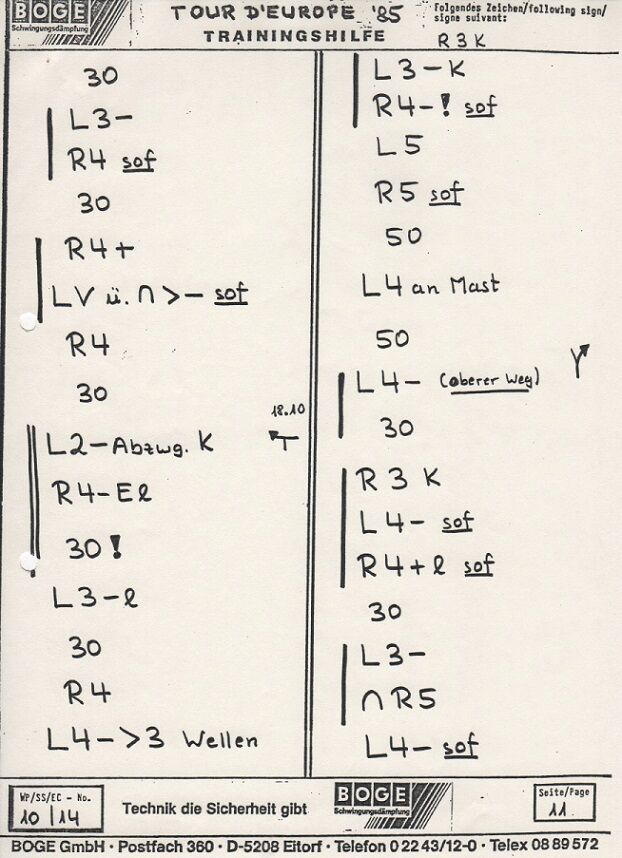 BOGE
Schwingungsdämpfung
TOUR D'EUROPE '85
TRAININGSHILFE
Folgendes Zeichen/following sign/
signe suivant:
R3K
30
L3-
R4 sof
30
R4+
LV ü. ∩ >- sof
R4
30
18.10
L2-Abzwg. K
R4-El
30!
L3-l
30
R4
L4->3 Wellen
L3-K
R4-! sof
L5
R5 sof
50
L4 an Mast
50
L4- (oberer Weg)
30
R3K
L4- sof
R4+l sof
30
L3-
∩R5
L4- sof
WP/SS/EC - No.
10/14
Technik die Sicherheit gibt
BOGE
Schwingungsdämpfung
Seite/Page
11
BOGE GmbH · Postfach 360 · D-5208 Eitorf · Telefon 0 22 43/12-0 · Telex 08 89 572